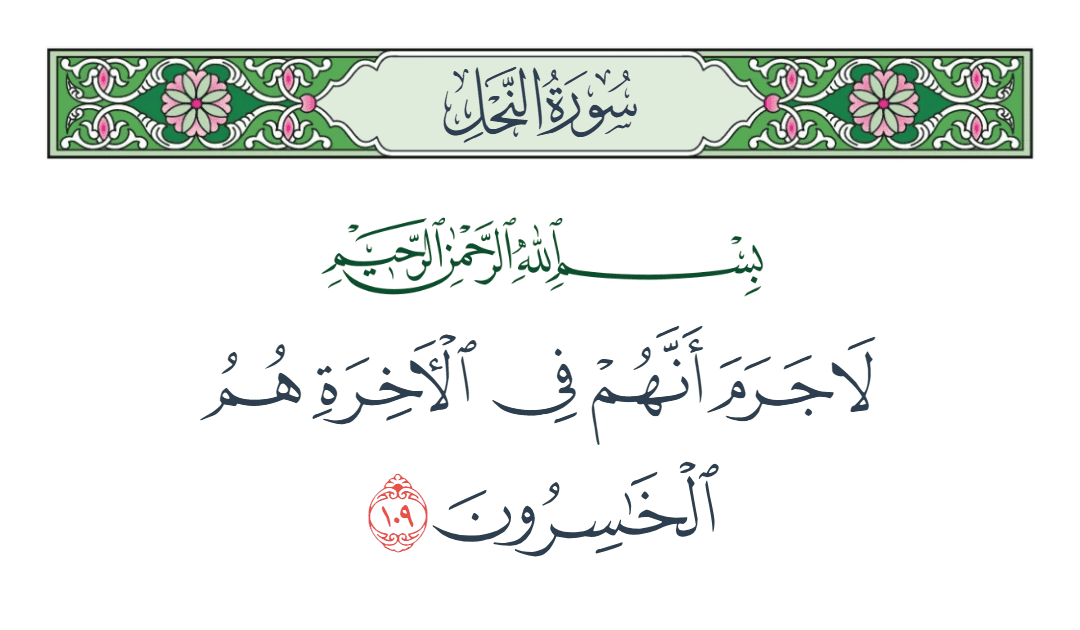 سُورَةُ النَّحْلِ
بِسْمِ ٱللَّهِ ٱلرَّحْمَٰنِ ٱلرَّحِيمِ
لَا جَرَمَ أَنَّهُمْ فِى ٱلْأَخِرَةِ هُمُ
ٱلْخَٰسِرُونَ ١٠٩